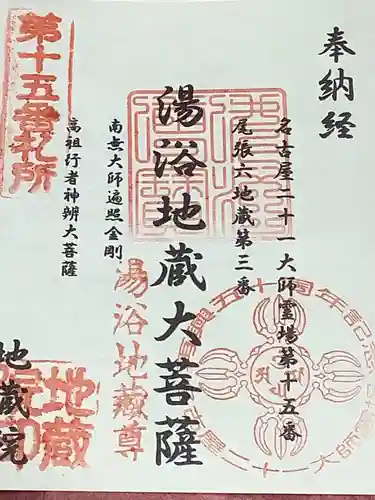 奉納経
名古屋二十一大師霊場第十五番
尾張六地蔵第三番
湯浴地蔵大菩薩
湯浴地蔵尊
南無大師遍照金剛
高祖行者神辨大菩薩
第十五番札所
地蔵院